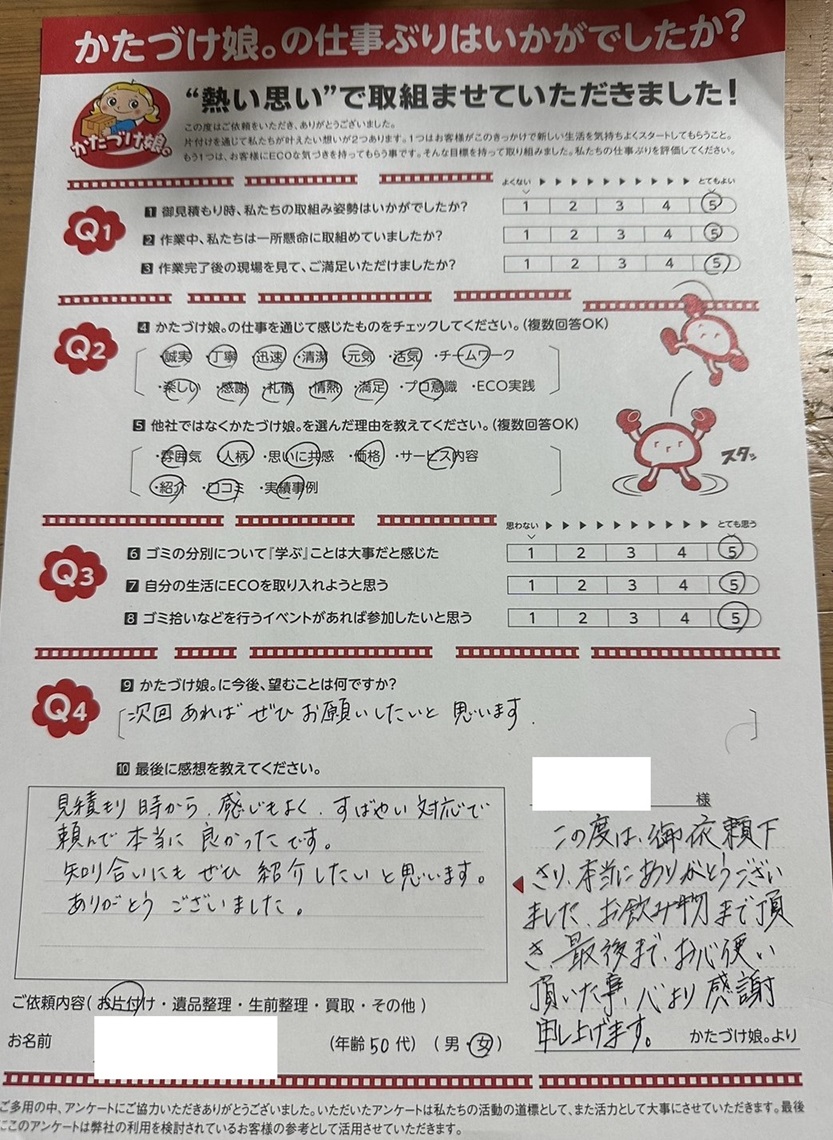 かたづけ娘。の仕事ぶりはいかがでしたか?
"熱い思い"で取組ませていただきました!
かたづけ娘。
この度はご依頼をいただき、ありがとうございました。
片付けを通じて私たちが叶えたい想いが2つあります。1つはお客様がこのきっかけで新しい生活を気持ちよくスタートしてもらうこと。
もう1つは、お客様にECOな気づきを持ってもらう事です。そんな目標を持って取り組みました。私たちの仕事ぶりを評価してください。
よくない ▶ ▶ ▶ ▶ ▶ ▶ ▶ ▶ ▶ ▶ とてもよい
Q1
1 御見積もり時、私たちの取組み姿勢はいかがでしたか? 1 2 3 4 5
2 作業中、私たちは一所懸命に取組めていましたか? 1 2 3 4 5
3 作業完了後の現場を見て、ご満足いただけましたか? 1 2 3 4 5
Q2
4 かたづけ娘。の仕事を通じて感じたものをチェックしてください。(複数回答OK)
・誠実 ・丁寧 ・迅速 ・清潔 ・元気 ・活気 ・チームワーク
・楽しい ・感謝 ・礼儀 ・情熱 ・満足 ・プロ意識 ・ECO実践
5 他社ではなくかたづけ娘。を選んだ理由を教えてください。(複数回答OK)
・雰囲気 ・人柄 ・思いに共感 ・価格 ・サービス内容
・紹介 ・口コミ ・実績事例
スタッ
思わない ▶ ▶ ▶ ▶ ▶ ▶ ▶ ▶ ▶ ▶ とても思う
Q3
6 ゴミの分別について『学ぶ』ことは大事だと感じた 1 2 3 4 5
7 自分の生活にECOを取り入れようと思う 1 2 3 4 5
8 ゴミ拾いなどを行うイベントがあれば参加したいと思う 1 2 3 4 5
Q4
9 かたづけ娘。に今後、望むことは何ですか?
次回あれば ぜひ お願いしたいと 思います.
10 最後に感想を教えてください。
見積もり 時から、感じもよく、すばやい 対応で
頼んで 本当に 良かったです。
知り合いにも ぜひ 紹介したいと思います。
ありがとう ございました。
様
この度は、御依頼下
さり、本当にありがとうござい
ました、お飲み物まで頂
き、最後まで、お心使い
頂いた事、心より感謝
申し上げます。
かたづけ娘。より
ご依頼内容(お片付け・遺品整理・生前整理・買取・その他)
お名前 (年齢50代) (男・女)
ご多用の中、アンケートにご協力いただきありがとうございました。いただいたアンケートは私たちの活動の道標として、また活力として大事にさせていただきます。最後
にこのアンケートは弊社の利用を検討されているお客様の参考として活用させていただきます。